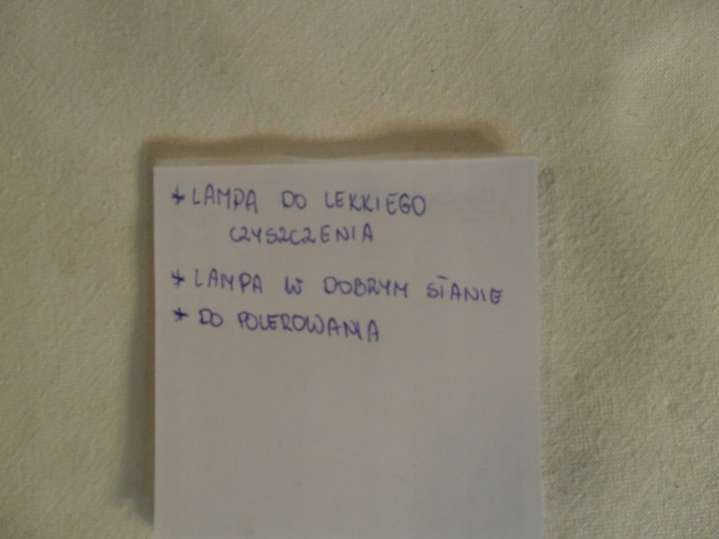 * LAMPA DO LEKKIEGO
CZYSZCZENIA
* LAMPA W DOBRYM STANIE
* DO POLEROWANIA